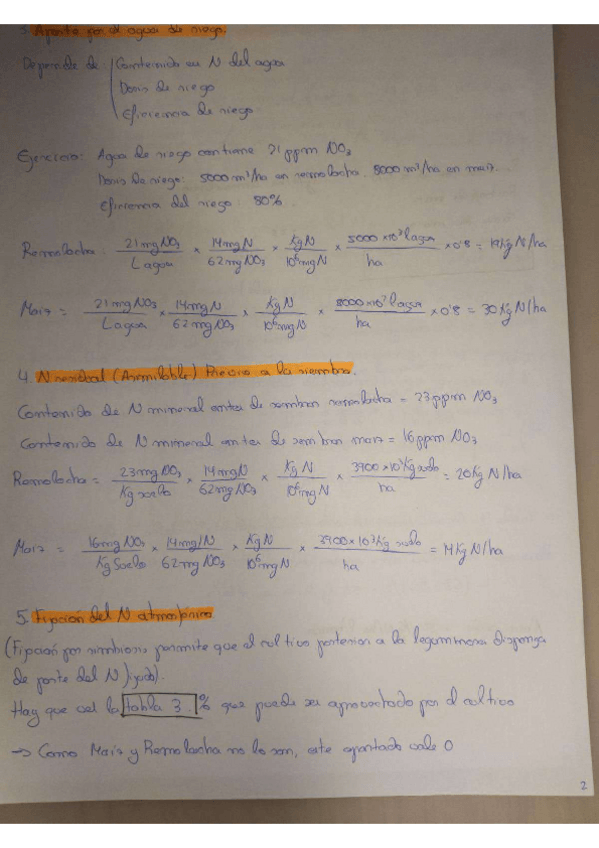 3. Aporte por el agua de riego.
Depende de Contenido en N del agua
Dosis de riego
Eficiencia de riego
Ejercicio: Agua de riego contiene 21 ppm NO3
Dosis de riego: 5000 m³/ha en remolacha. 8000 m³/ha en maiz.
Eficiencia del riego: 80%
Remolacha: 21 mg NO3 / L agua × 14 mg N / 62 mg NO3 × Kg N / 10⁶ mg N × 5000 × 10³ l agua / ha × 0'8 = 19 Kg N/ha
Maiz = 21 mg NO3 / L agua × 14 mg N / 62 mg NO3 × Kg N / 10⁶ mg N × 8000 × 10³ l agua / ha × 0'8 = 30 Kg N/ha
4. N residual (Asimilable) Previo a la siembra.
Contenido de N mineral antes de sembrar remolacha = 23 ppm NO3
Contenido de N mineral antes de sembrar maiz = 16 ppm NO3
Remolacha = 23 mg NO3 / Kg suelo × 14 mg N / 62 mg NO3 × Kg N / 10⁶ mg N × 3900 × 10³ Kg suelo / ha = 20 Kg N/ha
Maiz = 16 mg NO3 / Kg Suelo × 14 mg N / 62 mg NO3 × Kg N / 10⁶ mg N × 3900 × 10³ Kg suelo / ha = 14 Kg N/ha
5. Fijación del N atmosférico
(Fijación por simbiosis permite que el cultivo posterior a la leguminosa disponga
de parte del N fijado).
Hay que ver la tabla 3. % que puede ser aprovechado por el cultivo
→ Como Maiz y Remolacha no lo son, este apartado vale 0
2